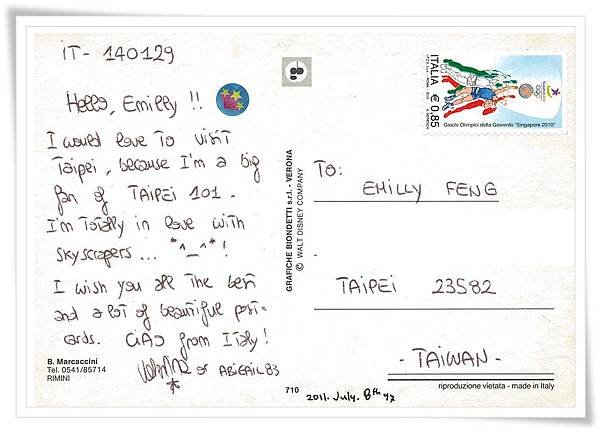 IT- 140129
Hello, Emilly !!
I would love to visit
Taipei, because I'm a big
fan of TAIPEI 101.
I'm totally in love with
skyscrapers... *^_^* !
I wish you all the best
and a lot of beautiful post-
cards. CIAO from Italy!
of ABIGAIL83
B. Marcaccini
Tel. 0541/85714
RIMINI
GRAFICHE BIONDETTI s.r.l. - VERONA
© WALT DISNEY COMPANY
710
2011. July. 8th
ITALIA € 0,85
Giochi Olimpici della Gioventù "Singapore 2010"
TO:
EMILLY FENG
TAIPEI 23582
- TAIWAN -
riproduzione vietata - made in Italy